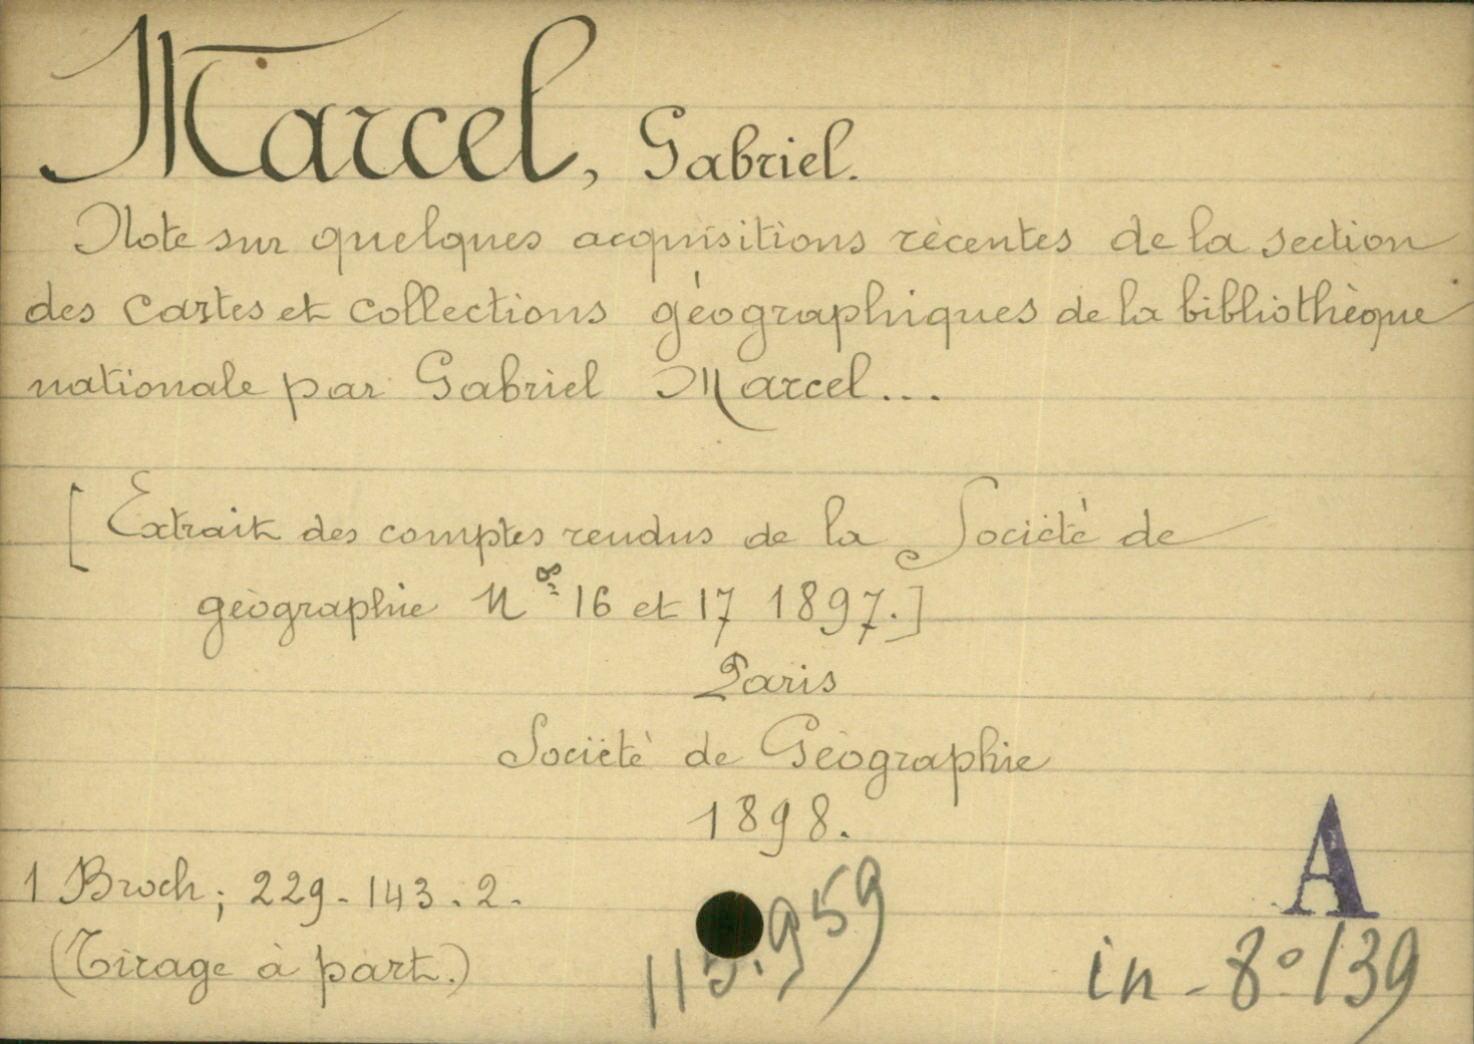 Marcel, Gabriel.
Note sur quelques acquisitions récentes de la section
des cartes et collections géographiques de la bibliothèque
nationale par Gabriel Marcel...
[Extrait des comptes rendus de la Société de
géographie Nos 16 et 17 1897.]
Paris
Société de Géographie
1898.
1 Broch; 229-143.2.
(Tirage à part.)
115.959
A
in-8° 139